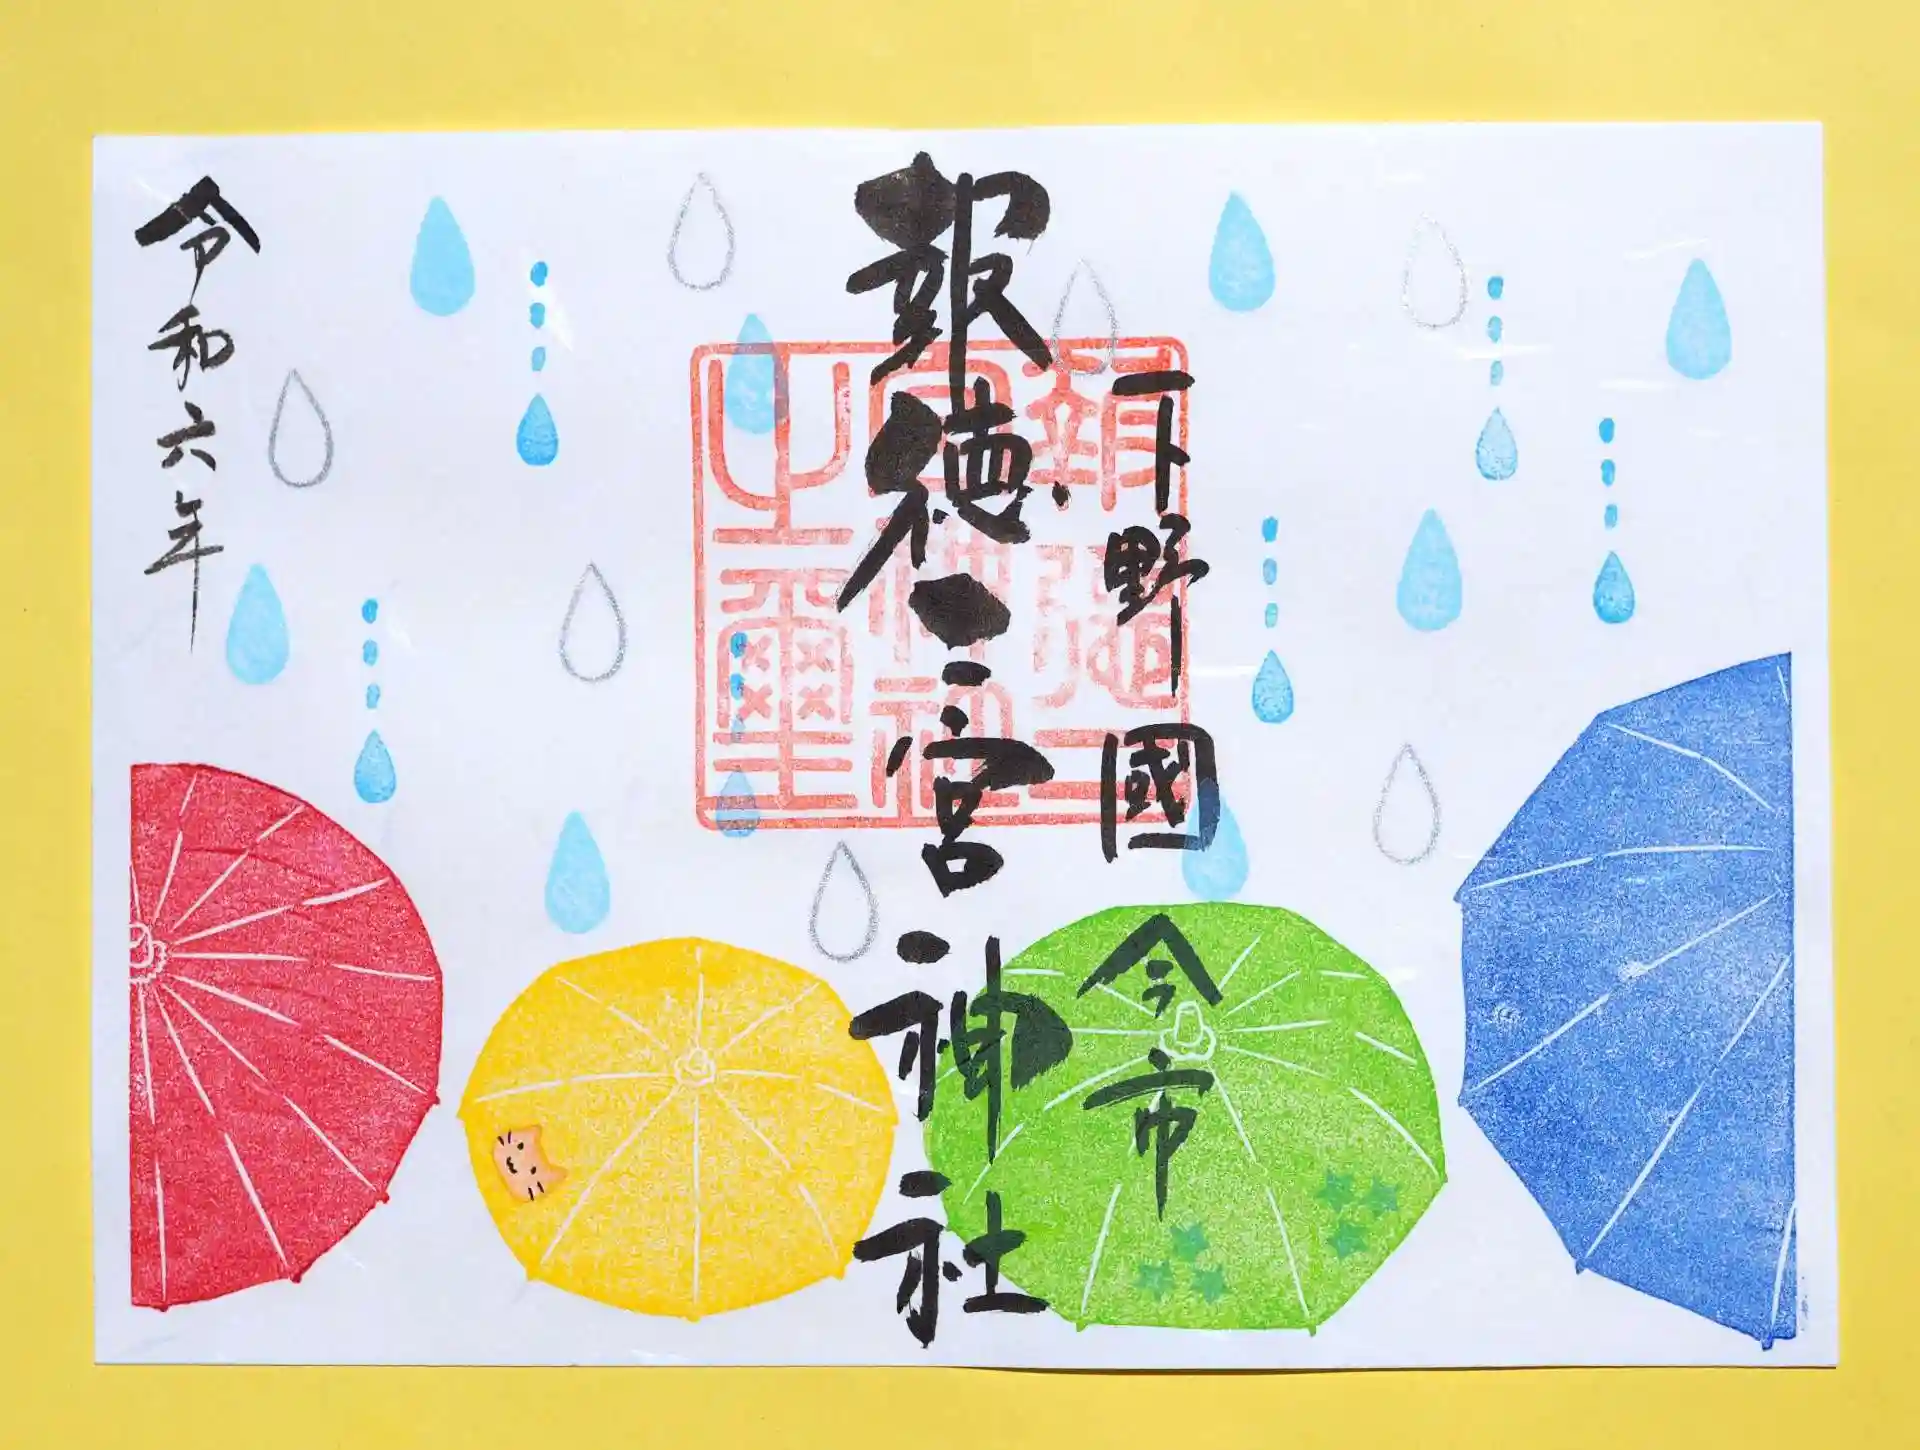 下野國 今市
報徳二宮神社
報徳二
宮神社
之璽
令和六年